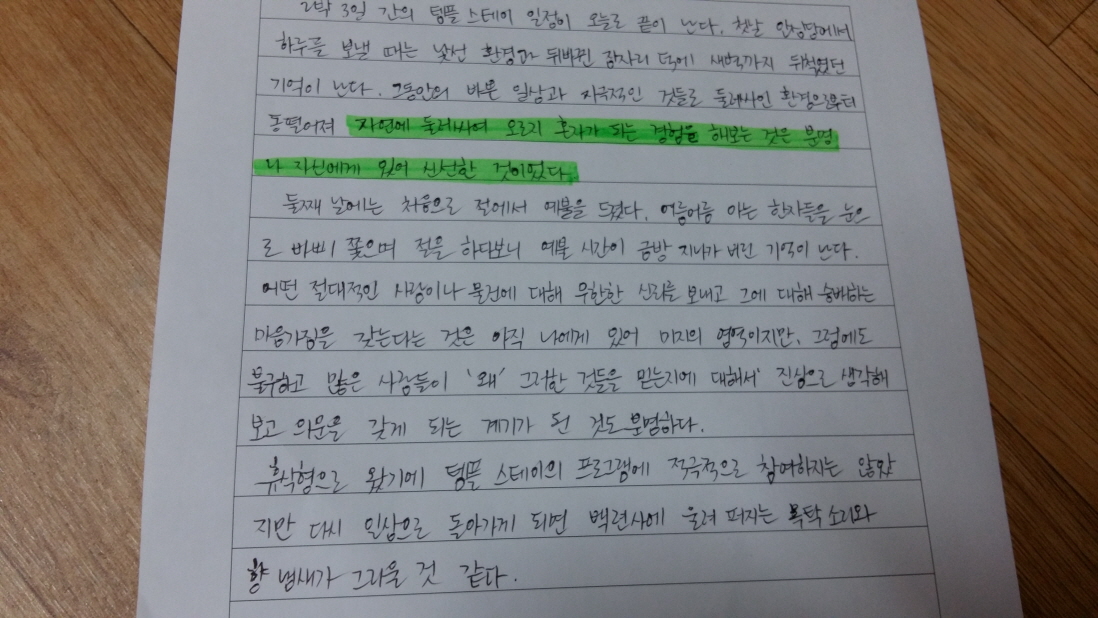 2박 3일 간의 템플 스테이 일정이 오늘로 끝이 난다. 첫날 안심당에서
하루를 보낼 때는 낯선 환경과 뒤바뀐 잠자리 덕에 새벽까지 뒤척였던
기억이 난다. 그동안의 바쁜 일상과 자극적인 것들로 둘러싸인 환경으로부터
동떨어져 자연에 둘러싸여 오로지 혼자가 되는 경험을 해보는 것은 분명
나 자신에게 있어 신선한 것이었다.
둘째 날에는 처음으로 절에서 예불을 드렸다. 어름어름 아는 한자들을 눈으
로 바삐 쫓으며 절을 하다보니 예불 시간이 금방 지나가 버린 기억이 난다.
어떤 절대적인 사람이나 물건에 대해 무한한 신뢰를 보내고 그에 대해 숭배하는
마음가짐을 갖는다는 것은 아직 나에게 있어 미지의 영역이지만, 그럼에도
불구하고 많은 사람들이 '왜' 그러한 것들을 믿는지에 대해서 진심으로 생각해
보고 의문을 갖게 되는 계기가 된 것도 분명하다.
휴식형으로 왔기에 템플 스테이의 프로그램에 적극적으로 참여하지는 않았
지만 다시 일상으로 돌아가게 되면 백련사에 울려 퍼지는 목탁 소리와
향 냄새가 그리울 것 같다.